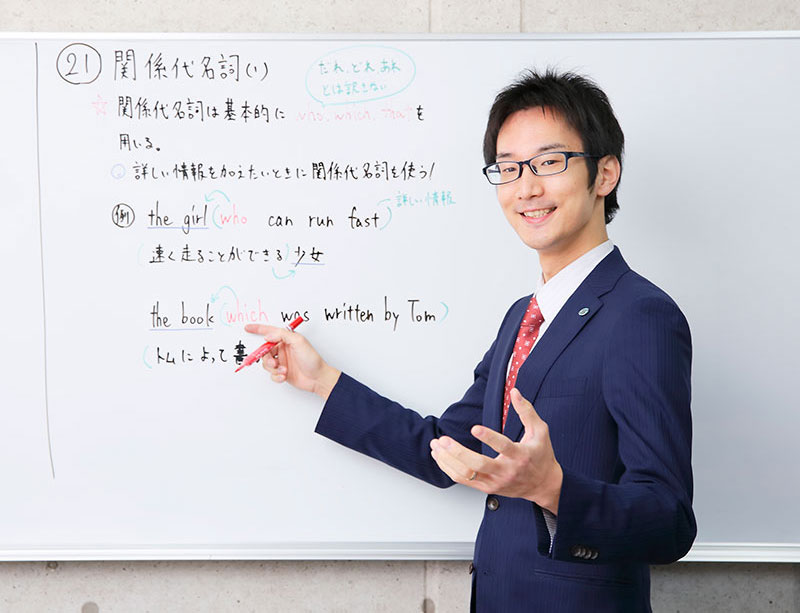 21 関係代名詞(1)
だれ、どれ、あれ
とは訳さない
☆ 関係代名詞は基本的に who, which, that を
用いる。
○ 詳しい情報を加えたいときに関係代名詞を使う!
例 the girl (who can run fast)
詳しい情報
(速く走ることができる)少女
the book (which was written by Tom)
(トムによって書